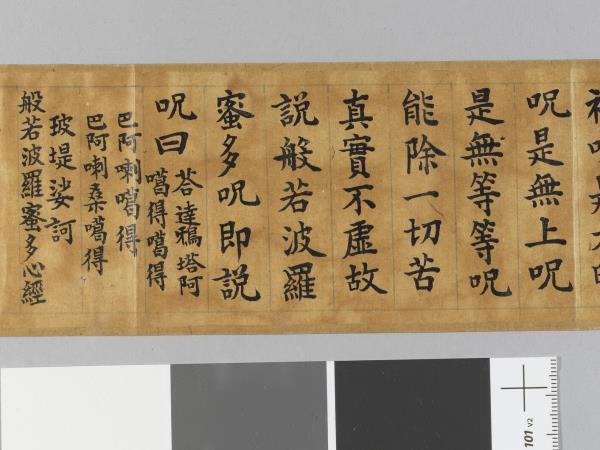 呪是無上呪
是無等等呪
能除一切苦
真實不虛故
說般若波羅
蜜多呪即說
呪曰
荅達鴉塔阿
噶得噶得
巴阿喇噶得
巴阿喇桒噶得
玻堤娑訶
般若波羅蜜多心經
101 v2